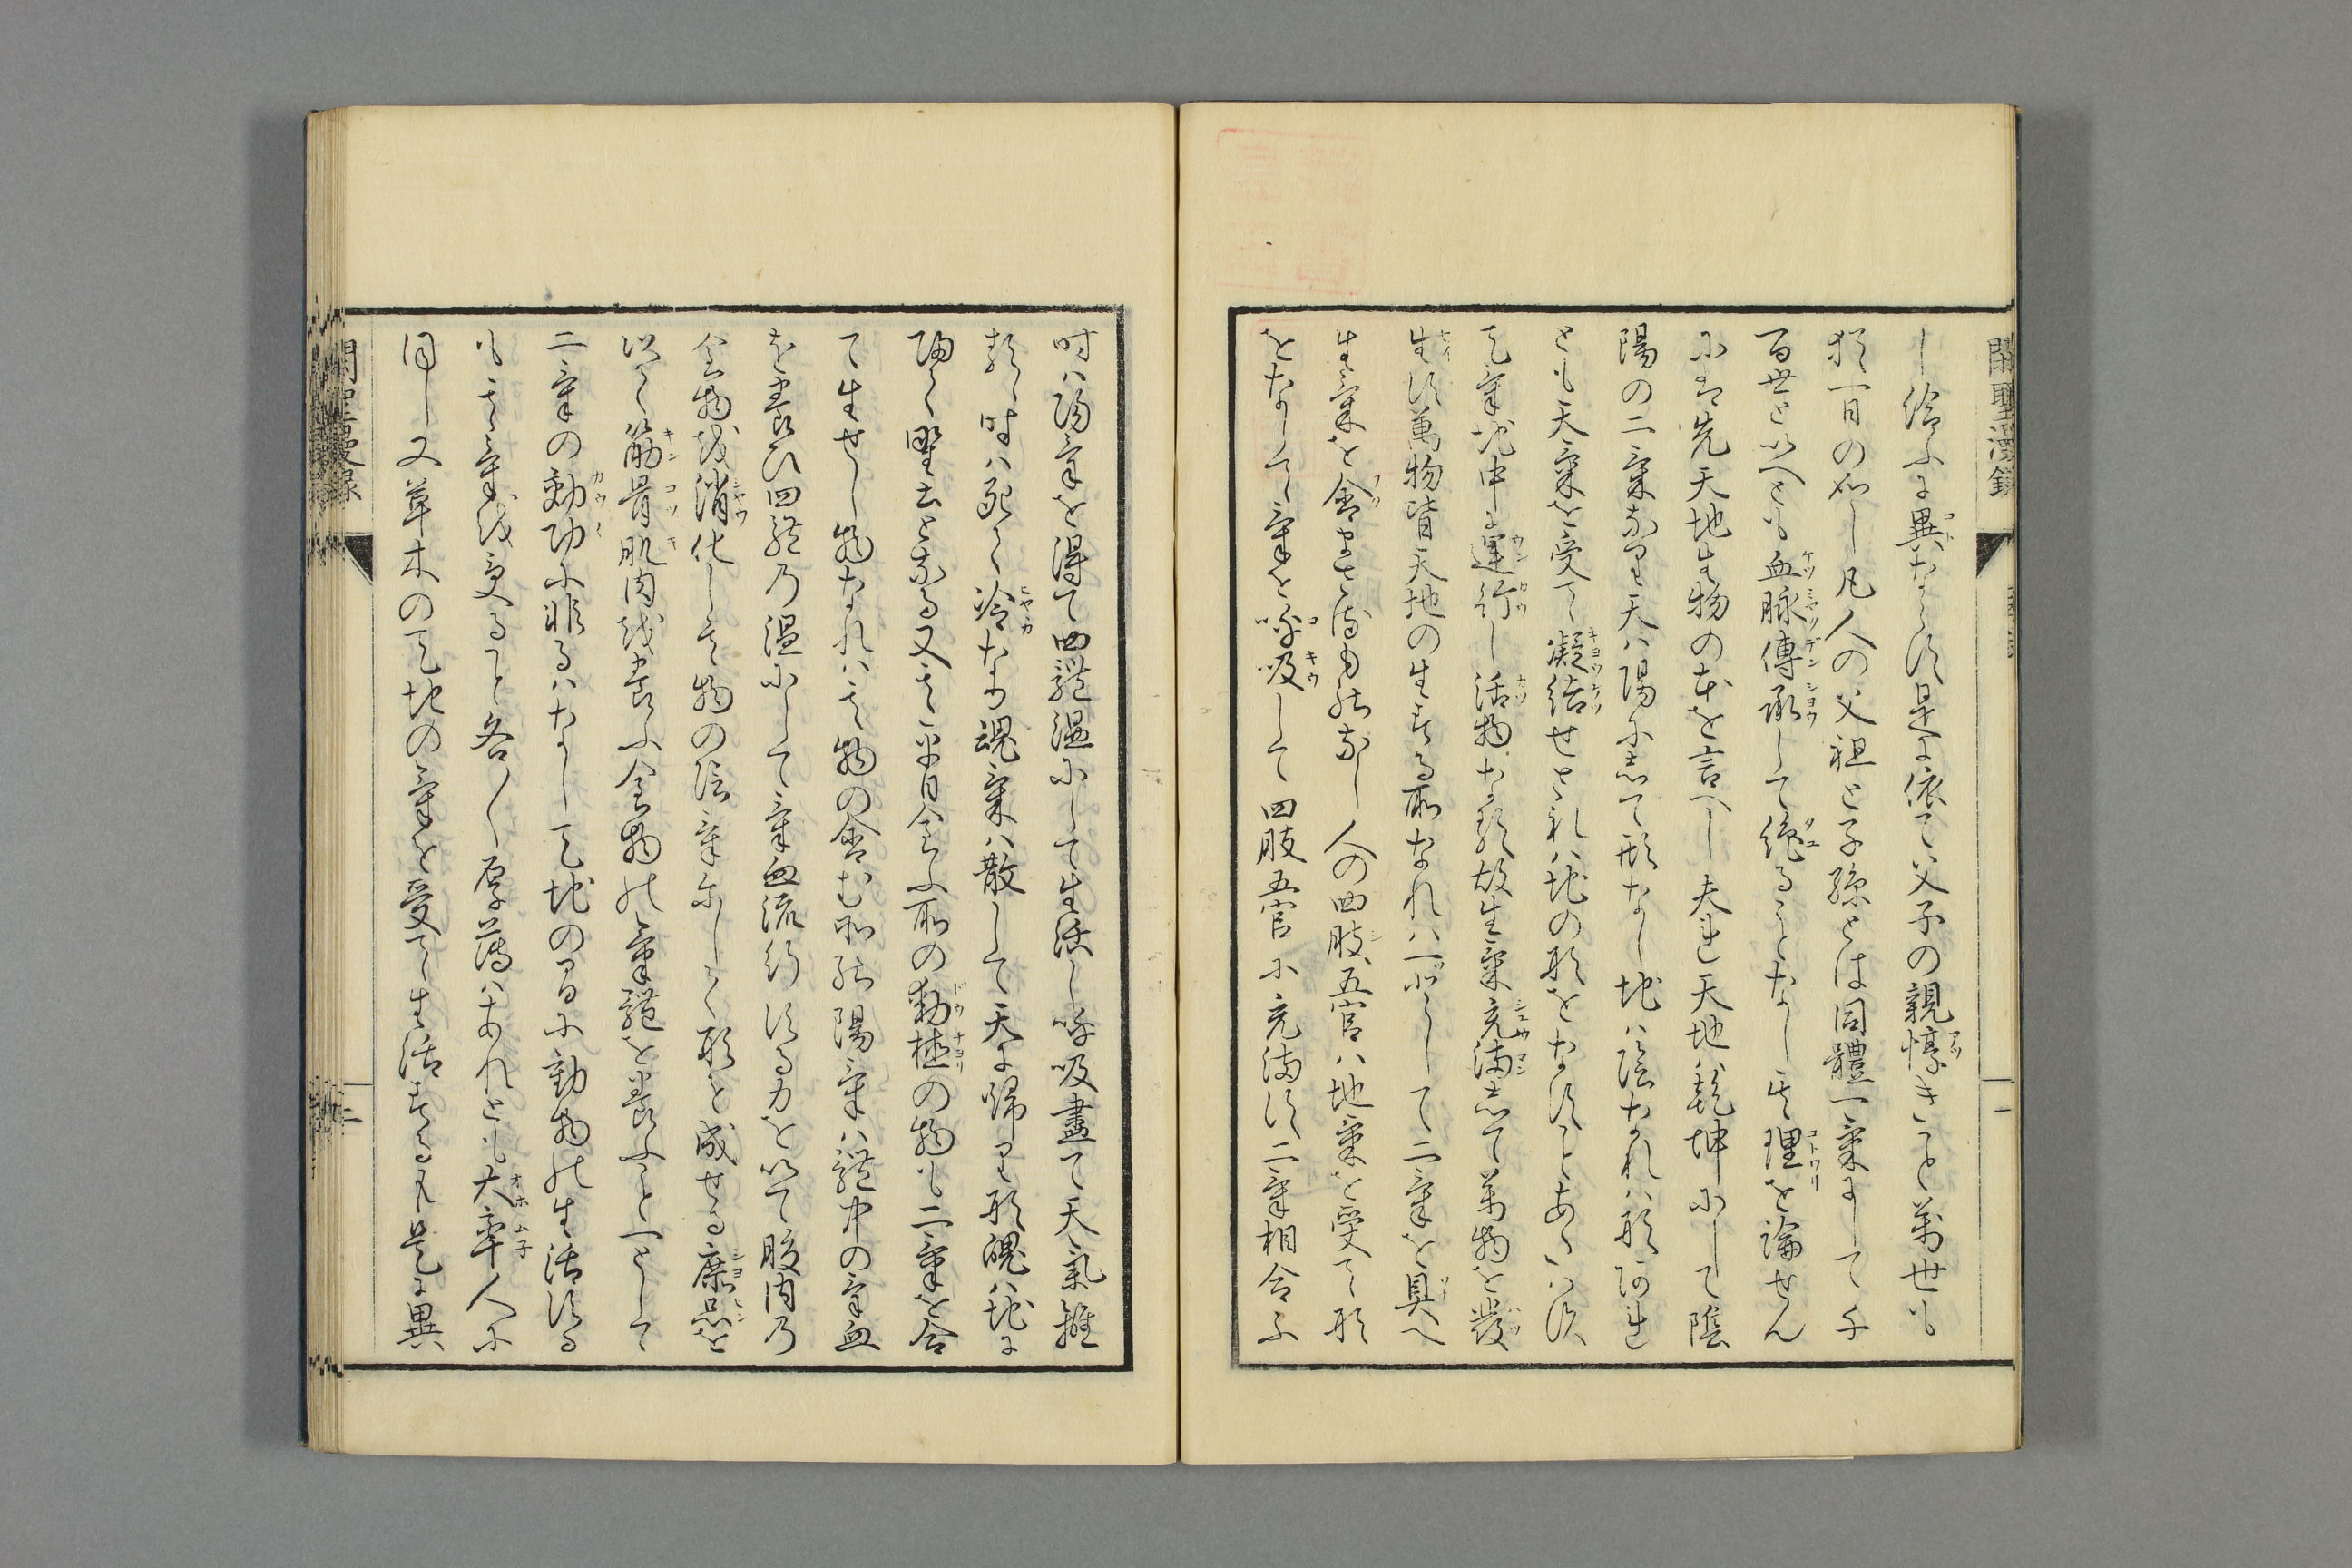 し給ふに異ならす是に依て父子の親惇きこと萬世も
猶一日の如し凡人の父祖と子孫とは同體一氣にして千
百世と以へとも血脉傳承して絶ることなし其理を論せん
には先天地生物の本を言へし夫連天地ハ乾坤にして陰
陽の二氣なり天ハ陽にして形なし地ハ陰なれハ形あれ
とも天氣を受て凝結せされハ地の形をなすことあたハす
天氣地中に運行し活物なる故生氣充満して萬物を發
生す萬物皆天地の生する所なれハ一ツとして二氣を具へ
生氣を含まさるものなし人の四肢五官ハ地氣を受て形
をなして氣を呼吸して四肢五官に充満す二氣相合ふ
時ハ陽氣を得て四體温にして生活し呼吸盡て天氣離
るゝ時ハ死て冷なり魂氣ハ散して天に帰り形魄ハ地に
歸て野土となる又其平日食ふ所の動植の物も二氣を合
て生せし物なれハ其物の含む所の陽氣ハ體中の氣血
を養ひ四體乃温にして氣血流行する力を以て腹内乃
食物を消化し其物の陰氣にして形を成せる庶品を
以て筋骨肌肉を養ふ食物の氣體を養ふこと一として
二氣の動功に非るハなし天地の間に動物の生活する
も其氣を受ること各〱厚薄ハあれとも大率人に
同し又草木の天地の氣を受て生活するも是に異